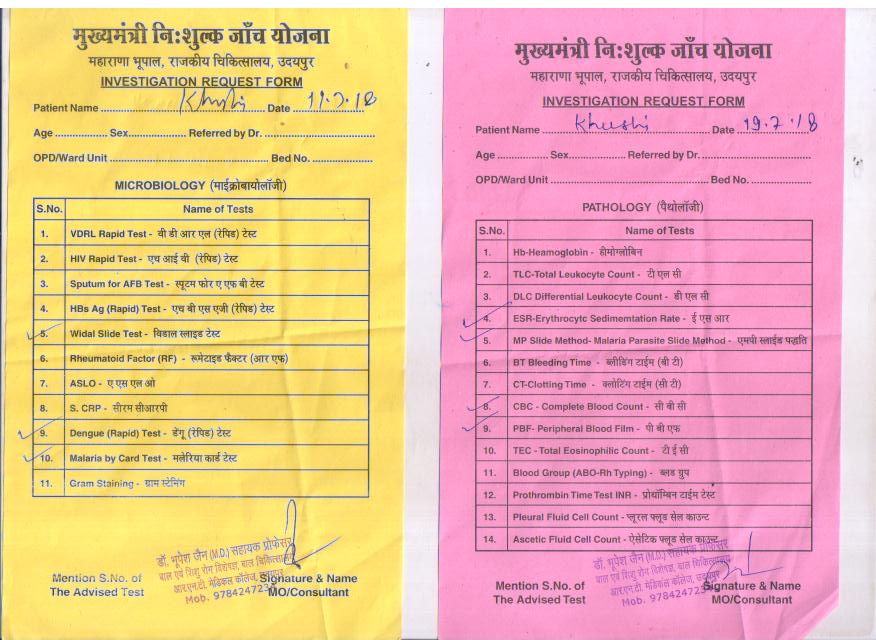 मुख्यमंत्री नि:शुल्क जाँच योजना
महाराणा भूपाल, राजकीय चिकित्सालय, उदयपुर
INVESTIGATION REQUEST FORM
Patient Name Khushi Date
Age Sex Referred by Dr.
OPD/Ward Unit Bed No.
MICROBIOLOGY (माईक्रोबायोलॉजी)
S.No. Name of Tests
1. VDRL Rapid Test - वी डी आर एल (रेपिड) टेस्ट
2. HIV Rapid Test - एच आई वी (रेपिड) टेस्ट
3. Sputum for AFB Test - स्पूटम फोर ए एफ बी टेस्ट
4. HBs Ag (Rapid) Test - एच बी एस एजी (रेपिड) टेस्ट
5. Widal Slide Test - विडाल स्लाइड टेस्ट
6. Rheumatoid Factor (RF) - रूमेटाइड फैक्टर (आर एफ)
7. ASLO - ए एस एल ओ
8. S. CRP - सीरम सीआरपी
9. Dengue (Rapid) Test - डेंगू (रेपिड) टेस्ट
10. Malaria by Card Test - मलेरिया कार्ड टेस्ट
11. Gram Staining - ग्राम स्टेनिंग
डॉ. भूपेश जैन (M.D.) सहायक प्रोफेसर
बाल एवं शिशु रोग विशेषज्ञ, बाल चिकित्सालय
आर.एन.टी. मेडिकल कॉलेज, उदयपुर
Mob. 978424723
Mention S.No. of Signature & Name
The Advised Test MO/Consultant
मुख्यमंत्री नि:शुल्क जाँच योजना
महाराणा भूपाल, राजकीय चिकित्सालय, उदयपुर
INVESTIGATION REQUEST FORM
Patient Name Khushi Date 19.7.18
Age Sex Referred by Dr.
OPD/Ward Unit Bed No.
PATHOLOGY (पैथोलॉजी)
S.No. Name of Tests
1. Hb-Heamoglobin - हीमोग्लोबिन
2. TLC-Total Leukocyte Count - टी एल सी
3. DLC Differential Leukocyte Count - डी एल सी
4. ESR-Erythrocytc Sedimentation Rate - ई एस आर
5. MP Slide Method- Malaria Parasite Slide Method - एमपी स्लाईड पद्धति
6. BT Bleeding Time - ब्लीडिंग टाईम (बी टी)
7. CT-Clotting Time - क्लोटिंग टाईम (सी टी)
8. CBC - Complete Blood Count - सी बी सी
9. PBF- Peripheral Blood Film - पी बी एफ
10. TEC - Total Eosinophilic Count - टी ई सी
11. Blood Group (ABO-Rh Typing) - ब्लड ग्रुप
12. Prothrombin Time Test INR - प्रोथॉम्बिन टाईम टेस्ट
13. Pleural Fluid Cell Count - प्लूरल फ्लूड सेल काउन्ट
14. Ascetic Fluid Cell Count - ऐसेटिक फ्लूड सेल काउन्ट
डॉ. भूपेश जैन (M.D.) सहायक प्रोफेसर
बाल एवं शिशु रोग विशेषज्ञ, बाल चिकित्सालय
आर.एन.टी. मेडिकल कॉलेज, उदयपुर
Mob. 978424723
Mention S.No. of Signature & Name
The Advised Test MO/Consultant